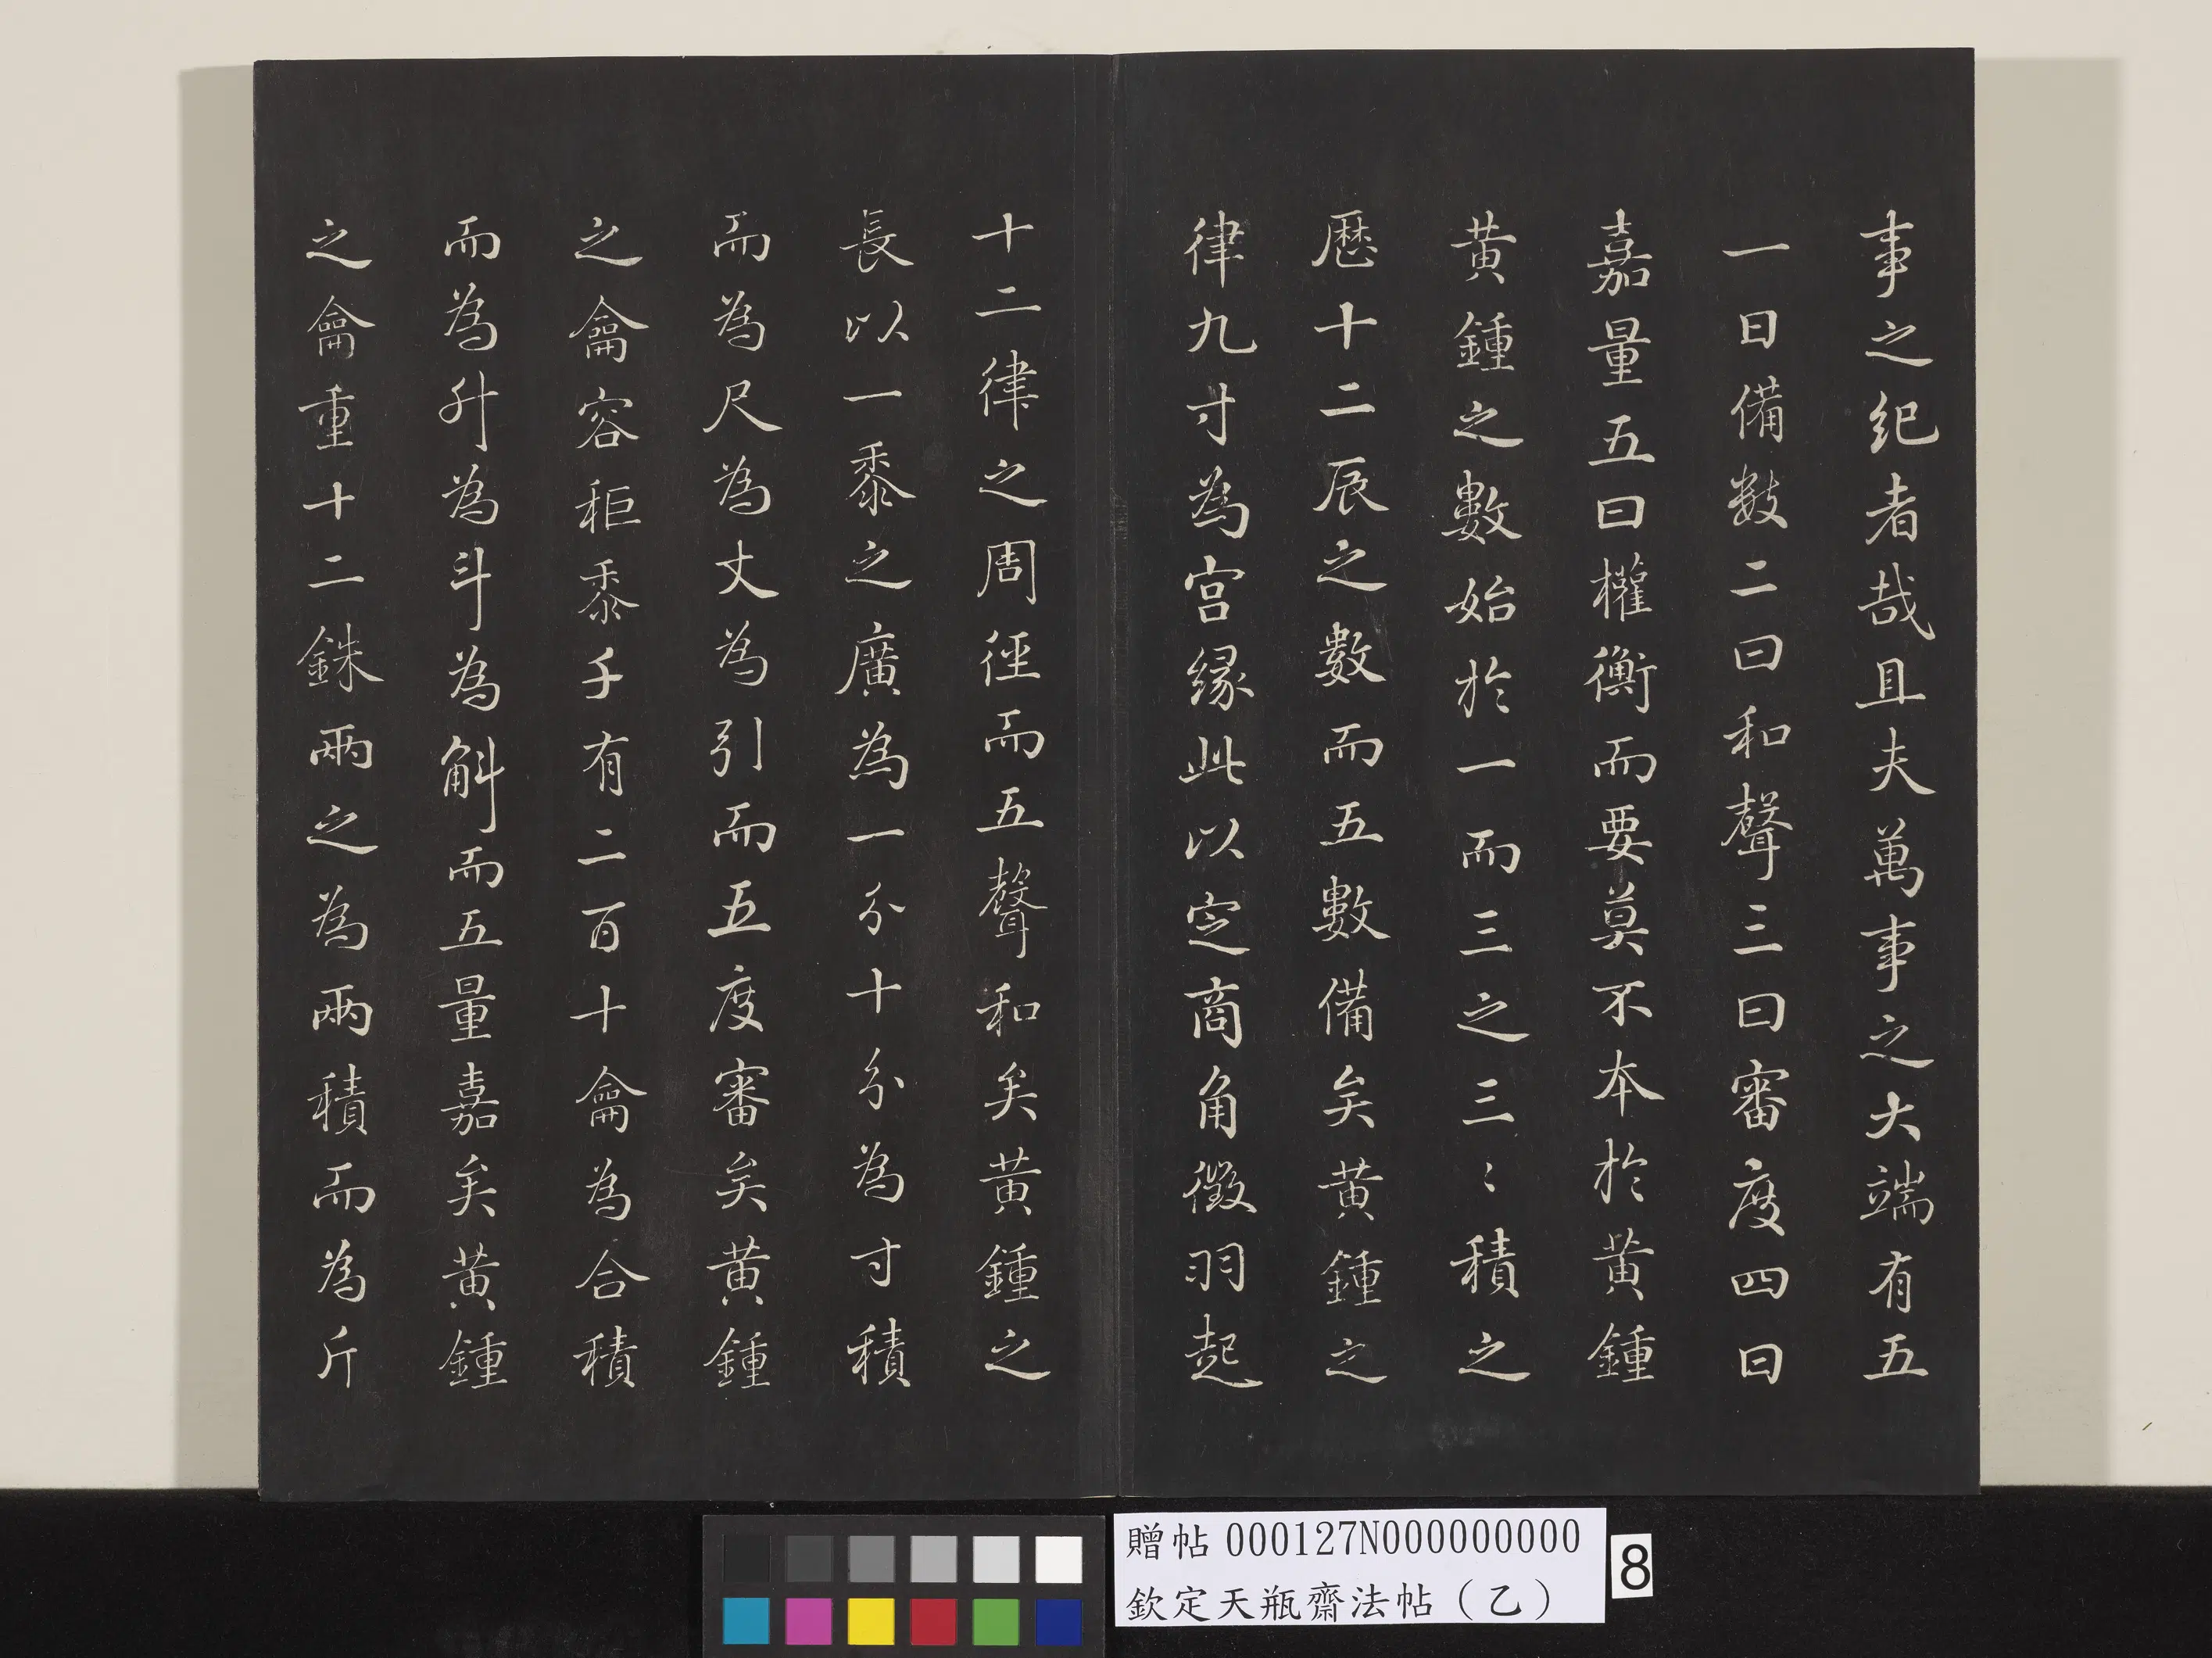 事之紀者哉且夫萬事之大端有五
一曰備數二曰和聲三曰審度四曰
嘉量五曰權衡而要莫不本於黃鍾
黃鍾之數始於一而三之三〻積之
歷十二辰之數而五數備矣黃鍾之
律九寸為宮緣此以定商角徵羽起
十二律之周徑而五聲和矣黃鍾之
長以一黍之廣為一分十分為寸積
而為尺為丈為引而五度審矣黃鍾
之龠容秬黍千有二百十龠為合積
而為升為斗為斛而五量嘉矣黃鍾
之龠重十二銖兩之為兩積而為斤
贈帖 000127N000000000
欽定天瓶齋法帖（乙）
8